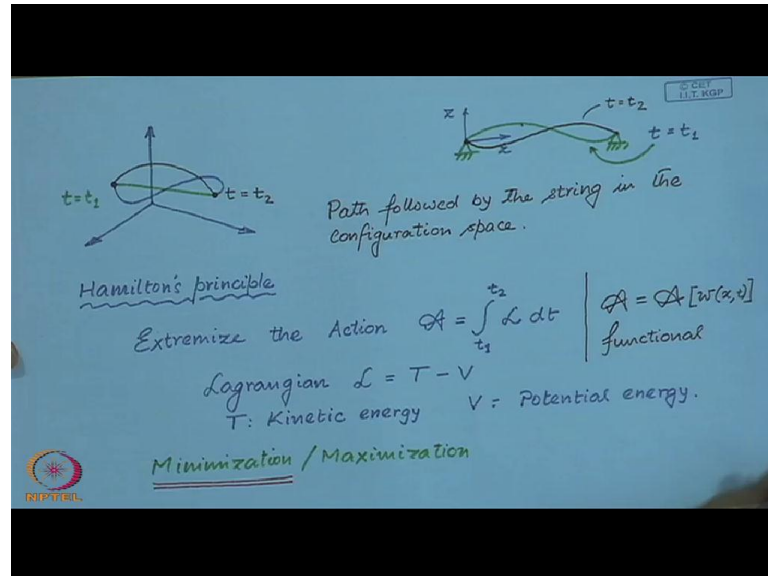 © CET
I.I.T. KGP
z
t = t₂
x
t = t₁
t = t₁
t = t₂
Path followed by the string in the
configuration space.
Hamilton's principle
Extremize the Action 𝒜 = ∫ₜ₁ᵗ² ℒ dt
𝒜 = 𝒜 [w(x,t)]
functional
Lagrangian ℒ = T − V
T: Kinetic energy V: Potential energy.
Minimization / Maximization
NPTEL